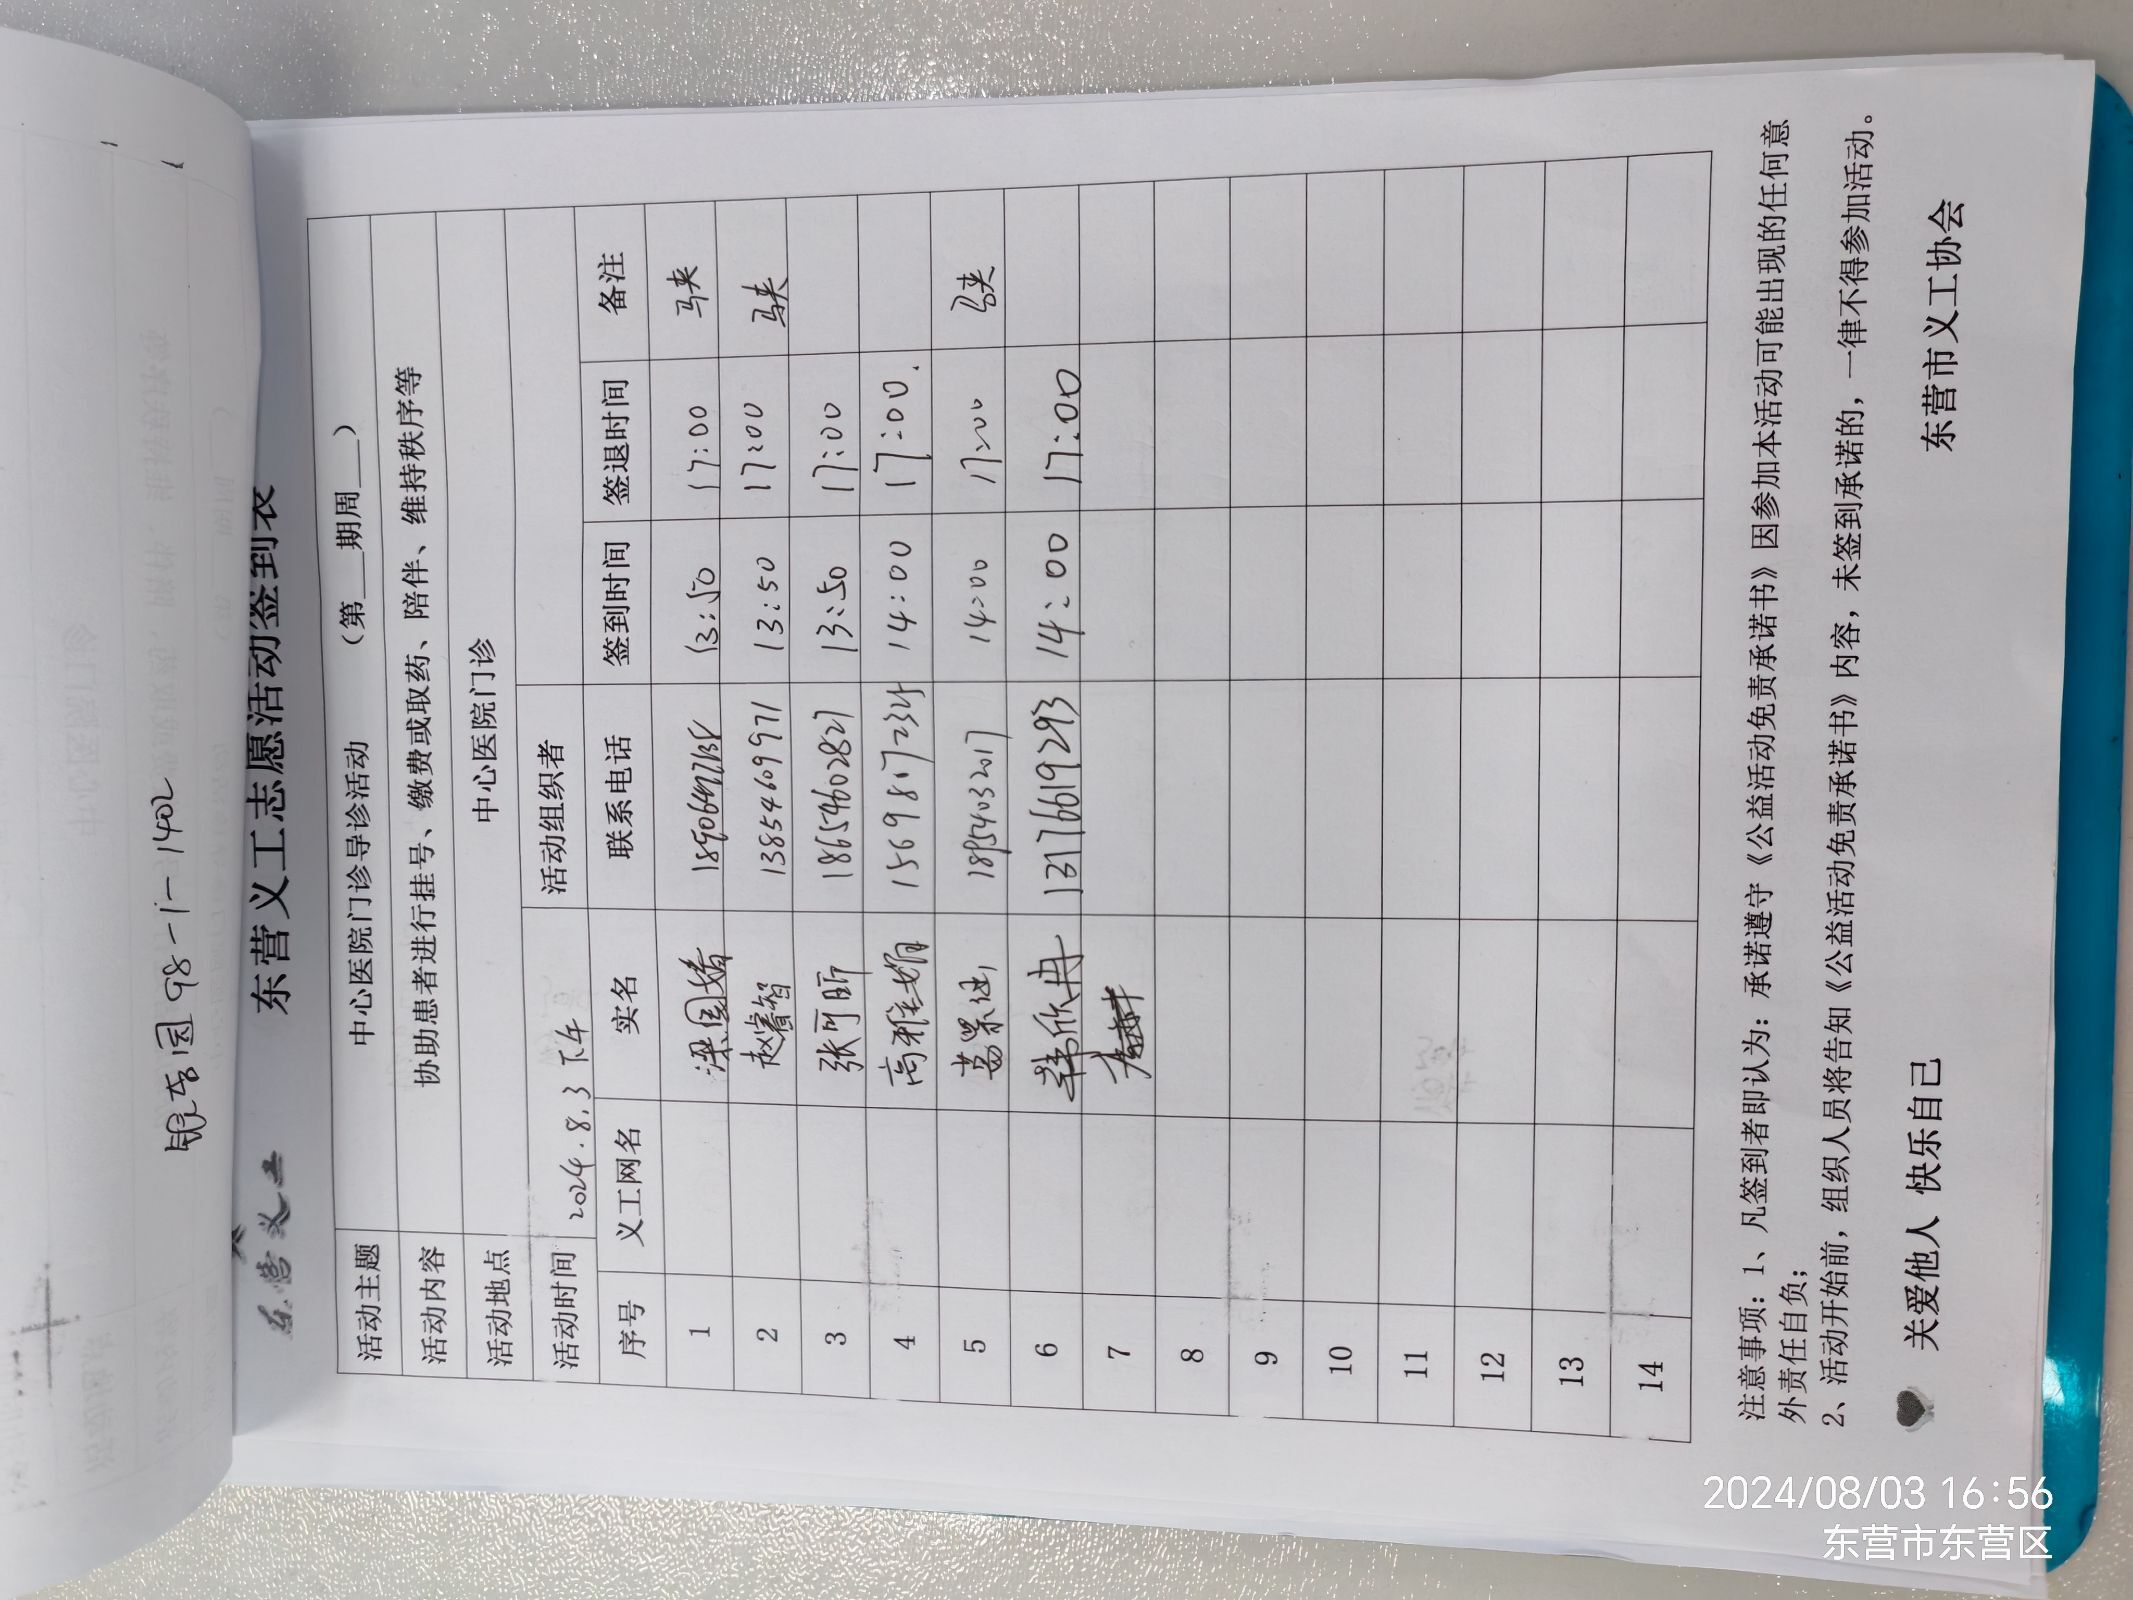 银杏园98-1-1402
东营义工
东营义工志愿活动签到表
活动主题 中心医院门诊导诊活动 （第__期周__）
活动内容 协助患者进行挂号、缴费或取药、陪伴、维持秩序等
活动地点 中心医院门诊
活动时间 2024.8.3 下午 活动组织者
序号 义工网名 实名 联系电话 签到时间 签退时间 备注
1 13:50 17:00
2 赵睿智 13854609971 13:50 17:00
3 张可昕 18654602827 13:50 17:00
4 高雅娟 14:00 17:00.
5 18954032017 14:00 17:00
6 韩欣冉 13176619293 14:00 17:00
7
8
9
10
11
12
13
14
注意事项：1、凡签到者即认为：承诺遵守《公益活动免责承诺书》因参加本活动可能出现的任何意
外责任自负；
2、活动开始前，组织人员将告知《公益活动免责承诺书》内容，未签到承诺的，一律不得参加活动。
关爱他人 快乐自己 东营市义工协会
2024/08/03 16:56
东营市东营区